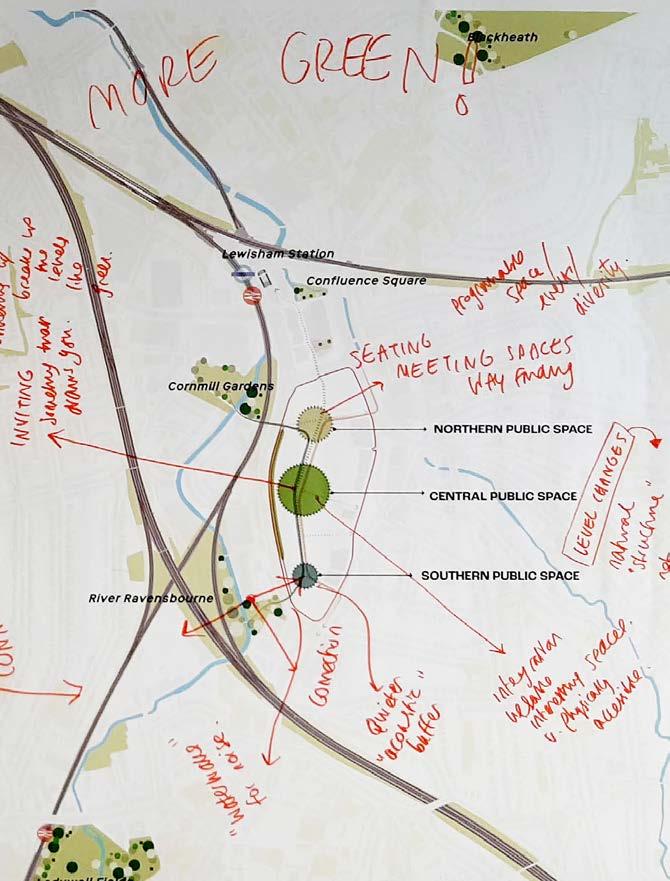 MORE GREEN!
Blackheath
Lewisham Station
Confluence Square
programmable
space/
events/
diversity.
breaks up
the
levels
like
green.
INVITING
something that
draws you.
SEATING
MEETING SPACES
Way finding
Cornmill Gardens
NORTHERN PUBLIC SPACE
CENTRAL PUBLIC SPACE
SOUTHERN PUBLIC SPACE
LEVEL CHANGES
natural
"structure"
River Ravensbourne
CONN
Connection
Quieter
"acoustic"
buffer
"water
for noise.
integration
welcome
interesting spaces.
v. physically
accessible.
Ladywell Fields